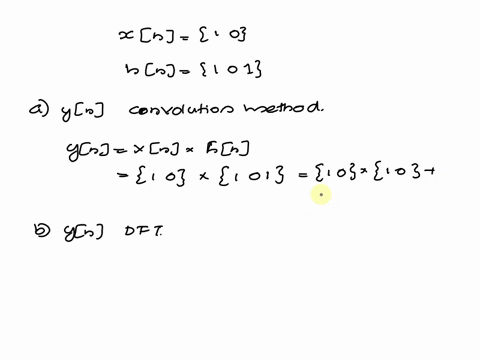 x[n] = {1 0}
h[n] = {1 0 1}
a) y[n] convolution method.
y[n] = x[n] * h[n]
= {1 0} * {1 0 1} = {1 0} * {1 0} +
b) y[n] DFT.